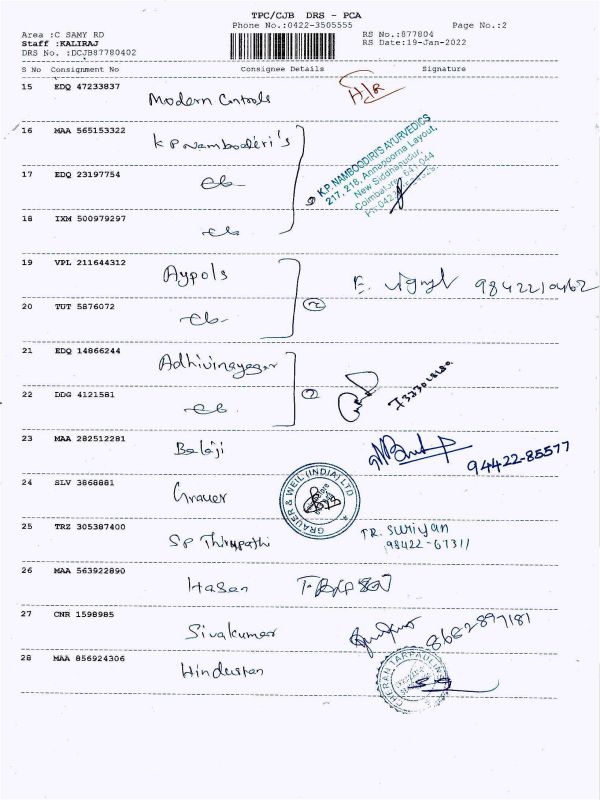 TPC/CJB DRS - PCA
Phone No.:0422-3505555
Page No.:2
Area :C SAMY RD
RS No.:877804
Staff :KALIRAJ
RS Date:19-Jan-2022
DRS No. :DCJB87780402
S No Consignment No Consignee Details Signature
15 EDQ 47233837
Modern Controls
H/R
16 MAA 565153322
K P Namboodiri's
K.P. NAMBOODIRI'S AYURVEDICS
217, 218, Annapoorna Layout,
New Siddhapudur,
Coimbatore - 641 044
17 EDQ 23197754
18 IXM 500979297
19 VPL 211644312
Aypols
2
E. 9842210462
20 TUT 5876072
21 EDQ 14866244
Adhivinayagar
2
22 DDG 4121581
23 MAA 282512281
Balaji
94422-85577
24 SLV 3868881
Grauer
GRAUER & WEIL (INDIA) LTD
25 TRZ 305387400
SP Thirupathi
TR. Suriyan
98422-67311
26 MAA 563922890
Hasan
27 CNR 1598985
Sivakumar
8682897181
28 MAA 856924306
Hindustan